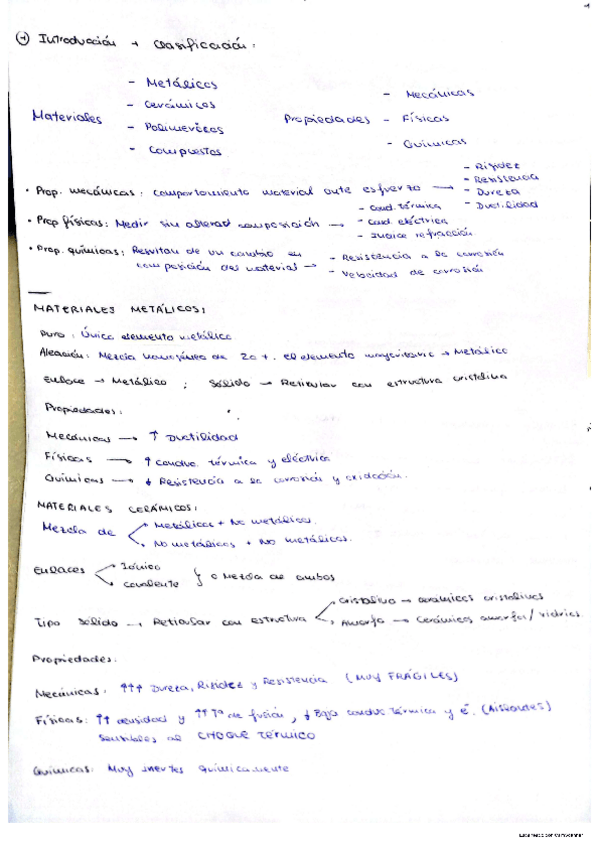 ① Introducción + Clasificación:
Materiales - Metálicos
- Cerámicos
- Poliméricos
- Compuestos
Propiedades - Mecánicas
- Físicas
- Químicas
• Prop. mecánicas: comportamiento material ante esfuerzo → - Rigidez
- Resistencia
- Dureza
- Ductilidad
• Prop físicas: Medir sin alterar composición → - Cond. térmica
- Cond. eléctrica
- Indice refracción
• Prop. químicas: Resultan de un cambio en
composición del material → - Resistencia a la corrosión
- Velocidad de corrosión
MATERIALES METÁLICOS:
Puro: Único elemento metálico
Aleación: Mezcla homogénea de 2 o +. El elemento mayoritario → Metálico
Enlace → Metálico; Sólido → Reticular con estructura cristalina
Propiedades:
Mecánicas → ↑ Ductilidad
Físicas → ↑ conduc. térmica y eléctrica
Químicas → ↓ Resistencia a la corrosión y oxidación.
MATERIALES CERÁMICOS:
Mezcla de Metálicos + No metálicos.
No metálicos + No metálicos.
Enlaces Iónico
covalente } o Mezcla de ambos
Tipo sólido → Reticular con estructura Cristalino → cerámicos cristalinos
Amorfo → Cerámicos amorfos / vidrios
Propiedades:
Mecánicas: ↑↑↑ Dureza, Rigidez y Resistencia (MUY FRÁGILES)
Físicas: ↑↑ densidad y ↑↑ Tª de fusión, ↓ Baja conduc térmica y e-. (Aislantes)
Sensibles al CHOQUE TÉRMICO
Químicas: Muy inertes químicamente